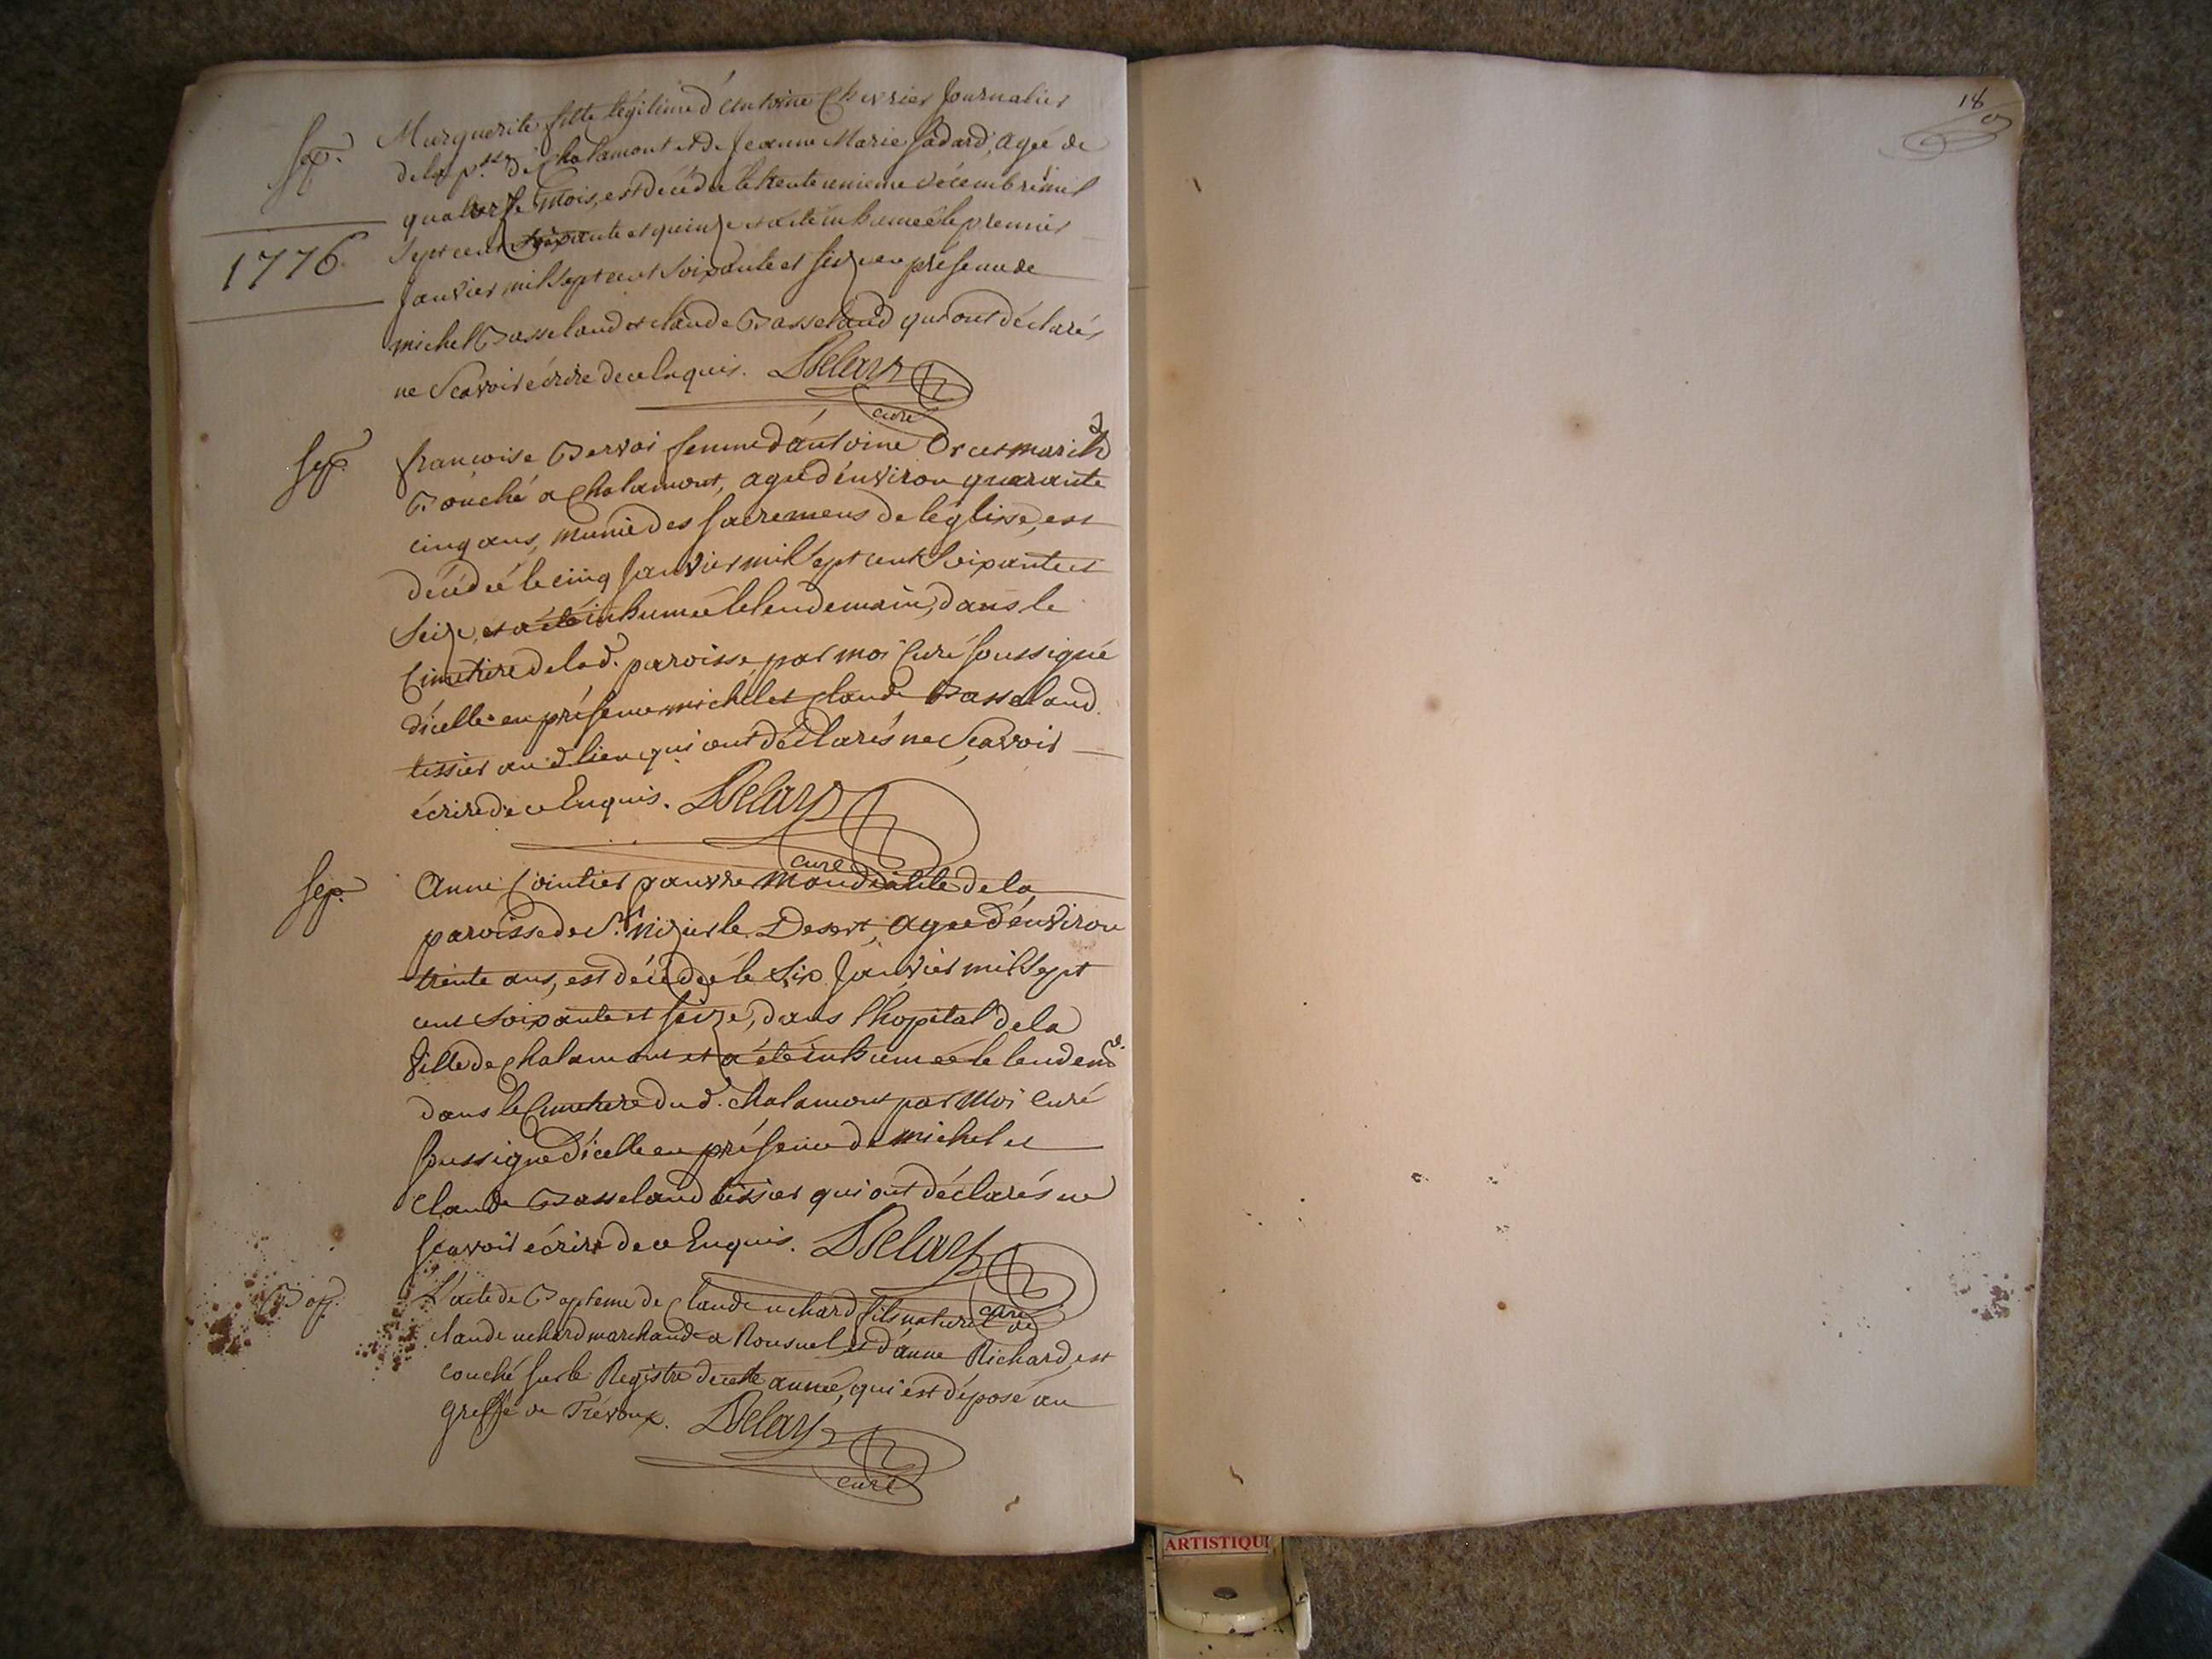 Sep. Marguerite fille légitime d'Antoine Chevrier Journalier
de la p.sse de Chalamont et de Jeanne Marie Sadard, agée de
quatorze mois, est décédée le trente unieme décembre mil
1776. sept cent soixante et quinze et a été inhumée le premier
Janvier mil sept cent soixante et seize en présence de
michel Basseland et claude Basseland qui ont déclarés
ne scavoir écrire de ce Enquis. Delary
curé
Sep. francoise Bervas femme d'antoine Orcet marih
Bouché a Chalamont, agée d'environ quarante
cinq ans, munie des sacremens de léglise, est
décédée le cinq Janvier mil sept cent soixante et
seize, et a été inhumée le lendemain, dans le
Cimetiere de lad. paroisse, par moi Curé soussigné
d'icelle en présence michel et Claude Basseland
tissier aud. lieu qui ont déclarés ne Scavoir
écrire de ce Enquis. Delary
curé
Sep. Anne Cointier pauvre mandiante de la
paroisse de St. nizier le Desert, agée d'environ
trente ans, est décédée le Six Janvier mil sept
cent soixante et seize, dans l'hopital de la
Ville de Chalamont et a été inhumée le lendem.
dans le Cimetiere dud. Chalamont par Moi Curé
soussigné d'icelle en présence de michel et
Claude Basseland tissier qui ont déclarés ne
scavoir écrire de ce Enquis. Delary
curé
Bap. L'acte de Bapteme de Claude uchard fils naturel de
claude uchard marchand a Rousuel, et d'anne Richard, est
couché sur le Registre de cette année, qui est déposé au
greffe de Trévoux. Delary
curé
18
ARTISTIQU